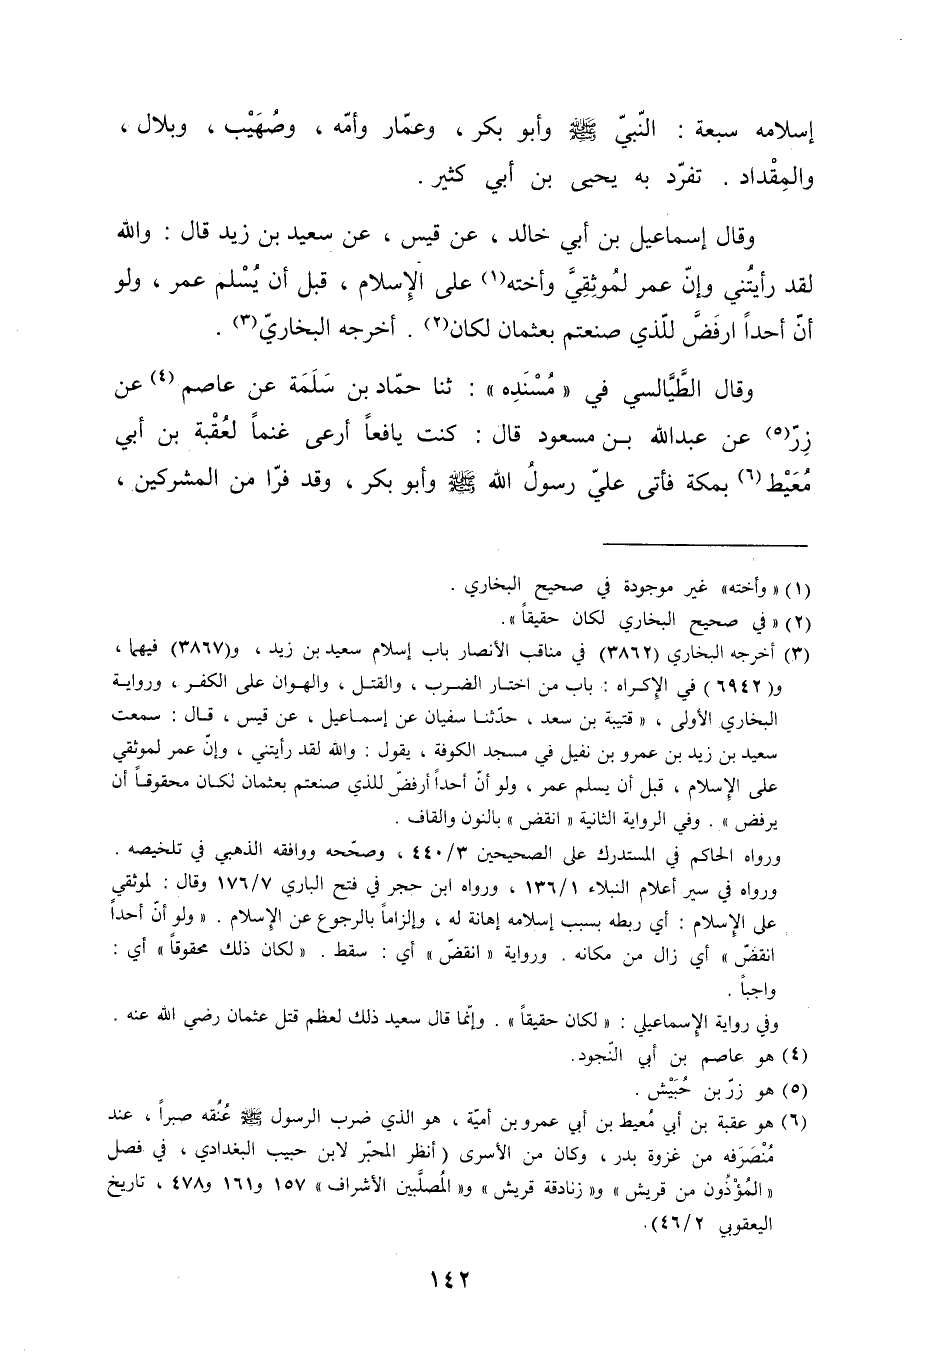 إسلامه سبعة : النّبيّ ﷺ وأبو بكر ، وعمّار وأمّه ، وصُهَيْب ، وبلال ،
والمِقْداد . تفرّد به يحيى بن أبي كثير .
وقال إسماعيل بن أبي خالد ، عن قيس ، عن سعيد بن زيد قال : والله
لقد رأيتُني وإنّ عمر لمُوثِقِيَّ وأخته(١) على الإِسلام ، قبل أن يُسْلم عمر ، ولو
أنّ أحداً ارفَضَّ للّذي صنعتم بعثمان لكان(٢) . أخرجه البخاريّ(٣) .
وقال الطَّيَّالسي في « مُسْنَدِه » : ثنا حمّاد بن سَلَمَة عن عاصم (٤) عن
زِرّ(٥) عن عبدالله بن مسعود قال : كنت يافعاً أرعى غنماً لعُقْبة بن أبي
مُعَيْط(٦) بمكة فأتى عليّ رسولُ الله ﷺ وأبو بكر ، وقد فرّا من المشركين ،
(١) « وأخته» غير موجودة في صحيح البخاري .
(٢) « في صحيح البخاري لكان حقيقاً ».
(٣) أخرجه البخاري (٣٨٦٢) في مناقب الأنصار باب إسلام سعيد بن زيد ، و(٣٨٦٧) فيهما ،
و(٦٩٤٢) في الإكراه : باب من اختار الضرب ، والقتل ، والهوان على الكفر ، ورواية
البخاري الأولى ، « قتيبة بن سعد ، حدّثنا سفيان عن إسماعيل ، عن قيس ، قال : سمعت
سعيد بن زيد بن عمرو بن نفيل في مسجد الكوفة ، يقول : والله لقد رأيتني ، وإنّ عمر لموثقي
على الإِسلام ، قبل أن يسلم عمر ، ولو أنّ أحداً أرفضّ للذي صنعتم بعثمان لكان محقوقاً أن
يرفض » . وفي الرواية الثانية « انقض » بالنون والقاف .
ورواه الحاكم في المستدرك على الصحيحين ٤٤٠/٣ ، وصحّحه ووافقه الذهبي في تلخيصه .
ورواه في سير أعلام النبلاء ١٣٦/١ ، ورواه ابن حجر في فتح الباري ١٧٦/٧ وقال : لموثقي
على الإِسلام : أي ربطه بسبب إسلامه إهانة له ، وإلزاماً بالرجوع عن الإِسلام . « ولو أنّ أحداً
انقضّ » أي زال من مكانه . ورواية « انقضّ » أي : سقط . « لكان ذلك محقوقاً » أي :
واجباً .
وفي رواية الإسماعيلي : « لكان حقيقاً » . وإنّما قال سعيد ذلك لعظم قتل عثمان رضي الله عنه .
(٤) هو عاصم بن أبي النّجود.
(٥) هو زرّ بن حُبَيْش .
(٦) هو عقبة بن أبي مُعيط بن أبي عمرو بن أميّة ، هو الذي ضرب الرسول ﷺ عُنُقه صبراً ، عند
مُنْصَرَفه من غزوة بدر ، وكان من الأسرى ( أنظر المحبّر لابن حبيب البغدادي ، في فصل
« المُؤْذُون من قريش » و« زنادقة قريش » و« المُصلَّبين الأشراف » ١٥٧ و١٦١ و٤٧٨ ، تاريخ
اليعقوبي ٤٦/٢).
١٤٢